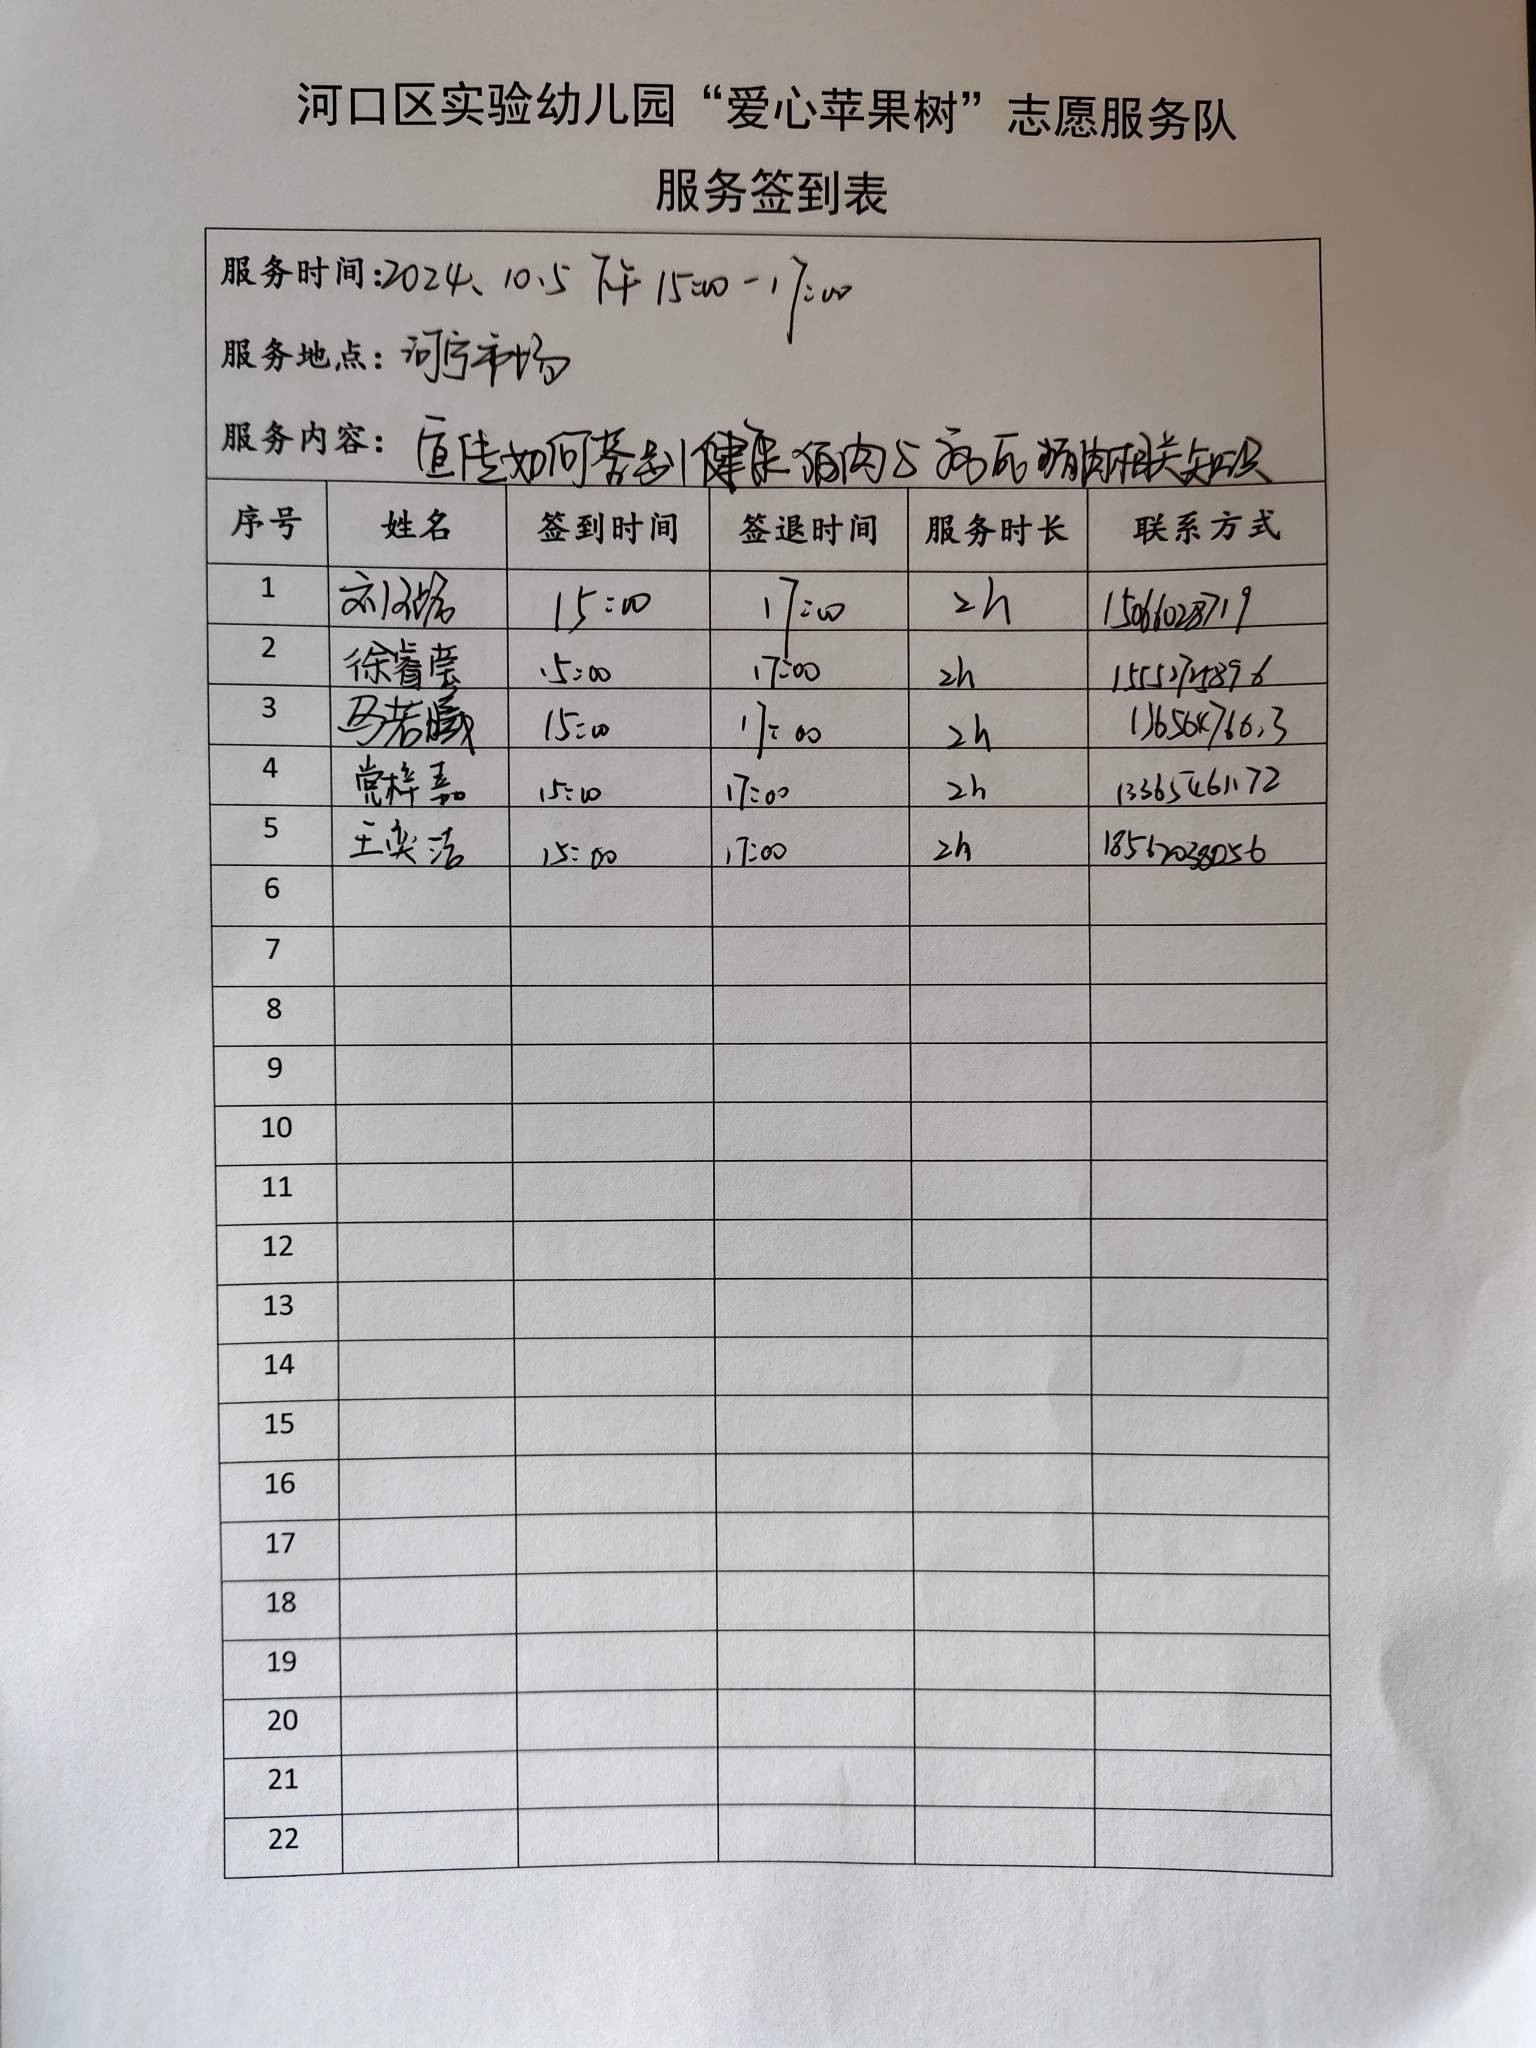 河口区实验幼儿园“爱心苹果树”志愿服务队
服务签到表
服务时间:2024、10.5 下午 15:00-17:00
服务地点: 河宁市场
服务内容: 宣传如何鉴别健康猪肉与病死猪肉相关知识
序号 姓名 签到时间 签退时间 服务时长 联系方式
1 15:00 17:00 2h 15066028719
2 徐睿莹 15:00 17:00 2h
3 马若曦 15:00 17:00 2h
4 党梓嘉 15:00 17:00 2h 13365461172
5 王奕洁 15:00 17:00 2h
6
7
8
9
10
11
12
13
14
15
16
17
18
19
20
21
22